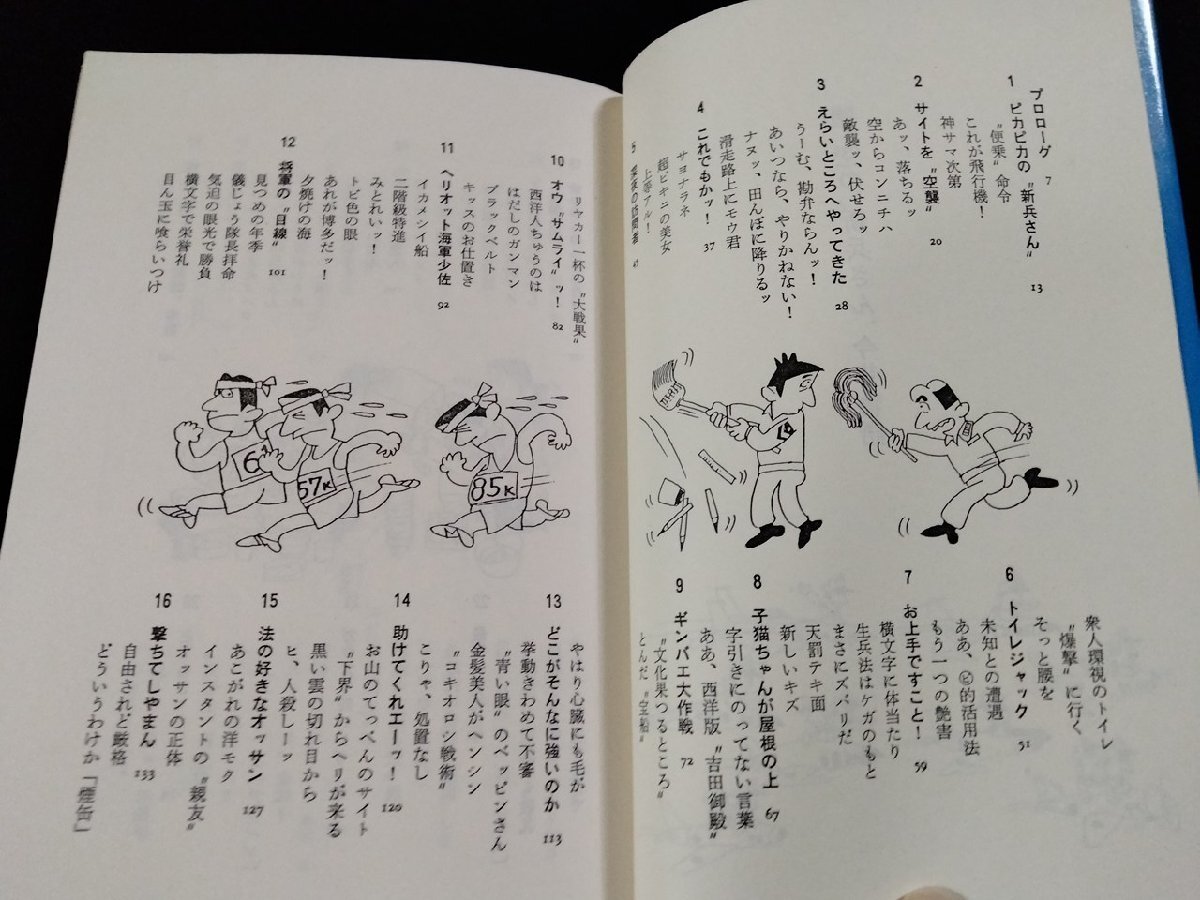 プロローグ 7
1 ピカピカの〝新兵さん〟 13
〝便乗〟命令
これが飛行機!
神サマ次第
2 サイトを〝空襲〟 20
あッ、落ちるッ
空からコンニチハ
敵襲ッ、伏せろッ
3 えらいところへやってきた 28
うーむ、勘弁ならんッ!
あいつなら、やりかねない!
ナヌッ、田んぼに降りるッ
滑走路上にモウ君
4 これでもかッ! 37
サヨナラネ
超ビキニの美女
上等アル!
5
衆人環視のトイレ
〝爆撃〟に行く
そっと腰を
6 トイレジャック 51
未知との遭遇
ああ、㋪的活用法
もう一つの艶書
7 お上手ですこと! 59
横文字に体当たり
生兵法はケガのもと
まさにズバリだ
天罰テキ面
新しいキズ
8 子猫ちゃんが屋根の上 67
字引きにのってない言葉
ああ、西洋版〝吉田御殿〟
9 ギンバエ大作戦 72
〝文化果つるところ〟
とんだ〝空船〟
リヤカー一杯の〝大戦果〟
10 オウ〝サムライ〟ッ! 82
西洋人ちゅうのは
はだしのガンマン
ブラックベルト
キッスのお仕置き
11 ヘリオット海軍少佐 92
イカメシイ船
二階級特進
みとれいッ!
トビ色の眼
あれが博多だッ!
夕焼けの海
12 将軍の〝目線〟 101
見つめの年季
儀じょう隊長拝命
気迫の眼光で勝負
横文字で栄誉礼
目ん玉に喰らいつけ
6
57K
85K
やはり心臓にも毛が
13 どこがそんなに強いのか 113
挙動きわめて不審
〝青い眼〟のベッピンさん
金髪美人がヘンシン
〝コキオロシ戦術〟
こりゃ、処置なし
14 助けてくれエーッ! 120
お山のてっぺんのサイト
〝下界〟からヘリが来る
黒い雲の切れ目から
ヒ、人殺しーッ
15 法の好きなオッサン 127
あこがれの洋モク
インスタントの〝親友〟
オッサンの正体
16 撃ちてしやまん 133
自由されど厳格
どういうわけか「煙缶」